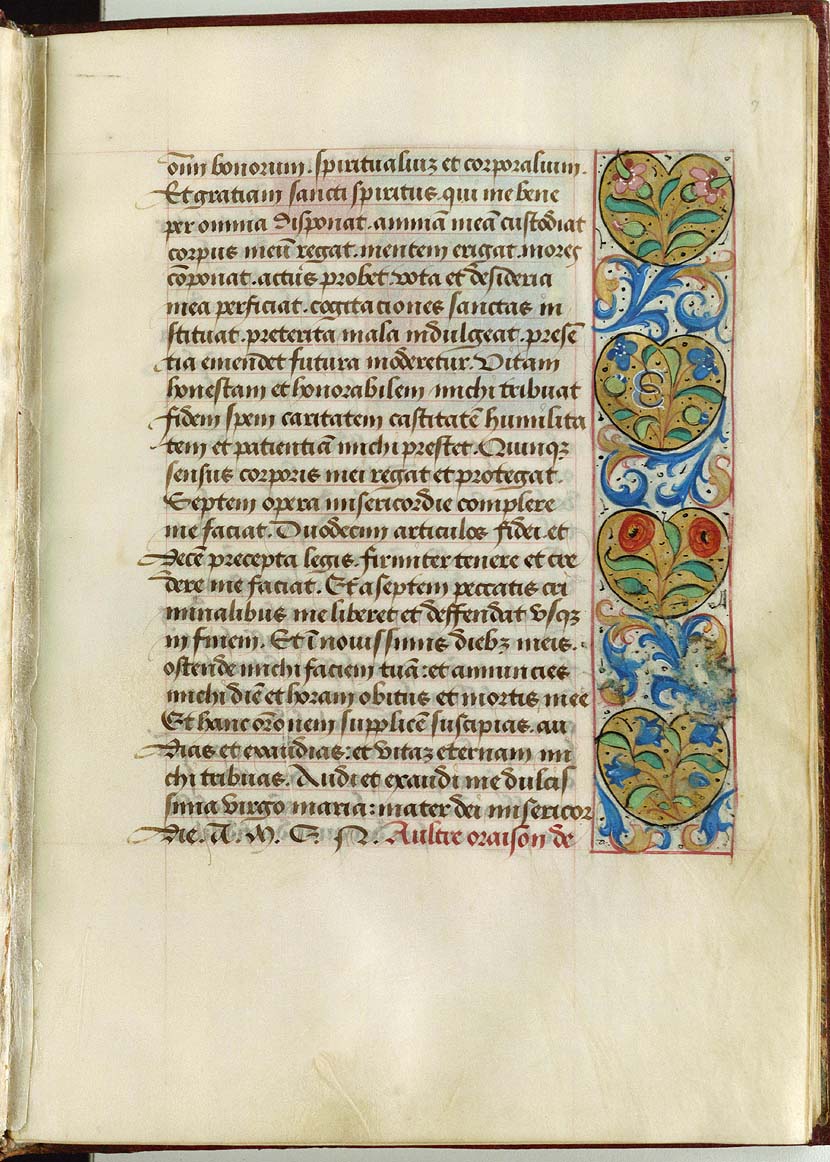 om̄ı bonorum. spiritualiuz et corporalium.
Et gratiam sancti spiritus. qui me bene
per omnia disponat. animā meā custodiat
corpus meū regat. mentem erigat. mores
cōponat. actus probet. vota et desideria
mea perficiat. cogitaciones sanctas in
stituat. preterita mala indulgeat. presē
tia emendet futura moderetur. Vitam
honestam et honorabilem michi tribuat
fidem spem caritatem castitatē humilita
tem et patientiā michi prestet. Quinqꝫ
sensus corporis mei regat et protegat.
Septem opera misericordie complere
me faciat. Duodecim articulos fidei. et
decē precepta legis. firmiter tenere et cre
dere me faciat. Et a septem peccatis cri
minalibus me liberet et deffendat vsqꝫ
in finem. Et ī nouissimis diebꝫ meis.
ostende michi faciem tuā: et annuncies
michi diē et horam obitus et mortis mee
Et hanc orōnem supplicē suscipias. au
dias et exaudias: et vitaz eternam mi
chi tribuas. Audi et exaudi me dulcis
sima virgo maria: mater dei misericor
die. A. M. E. N. Aultre oraison de